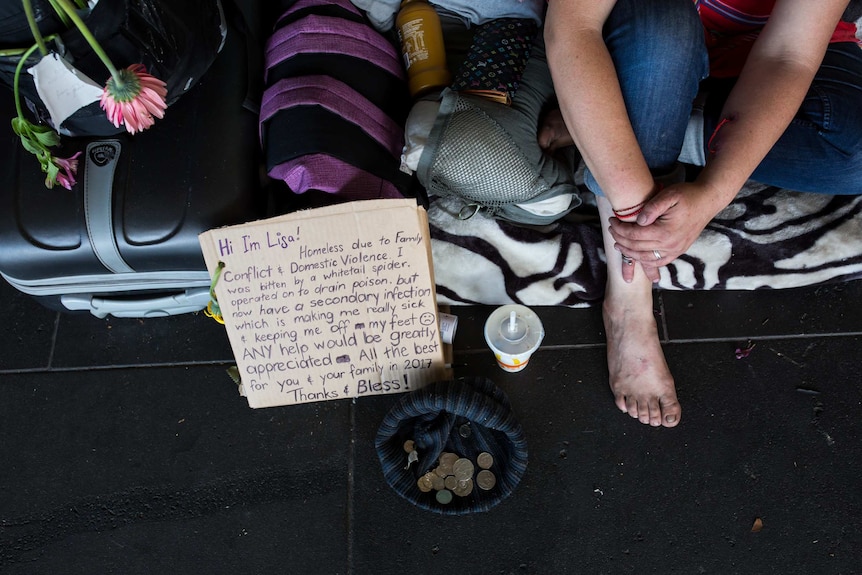 Hi I'm Lisa!
Homeless due to Family
Conflict & Domestic Violence. I
was bitten by a whitetail spider.
operated on to drain poison. but
now have a secondary infection
which is making me really sick
& keeping me off my feet
ANY help would be greatly
appreciated All the best
for you & your family in 2017
Thanks & Bless!